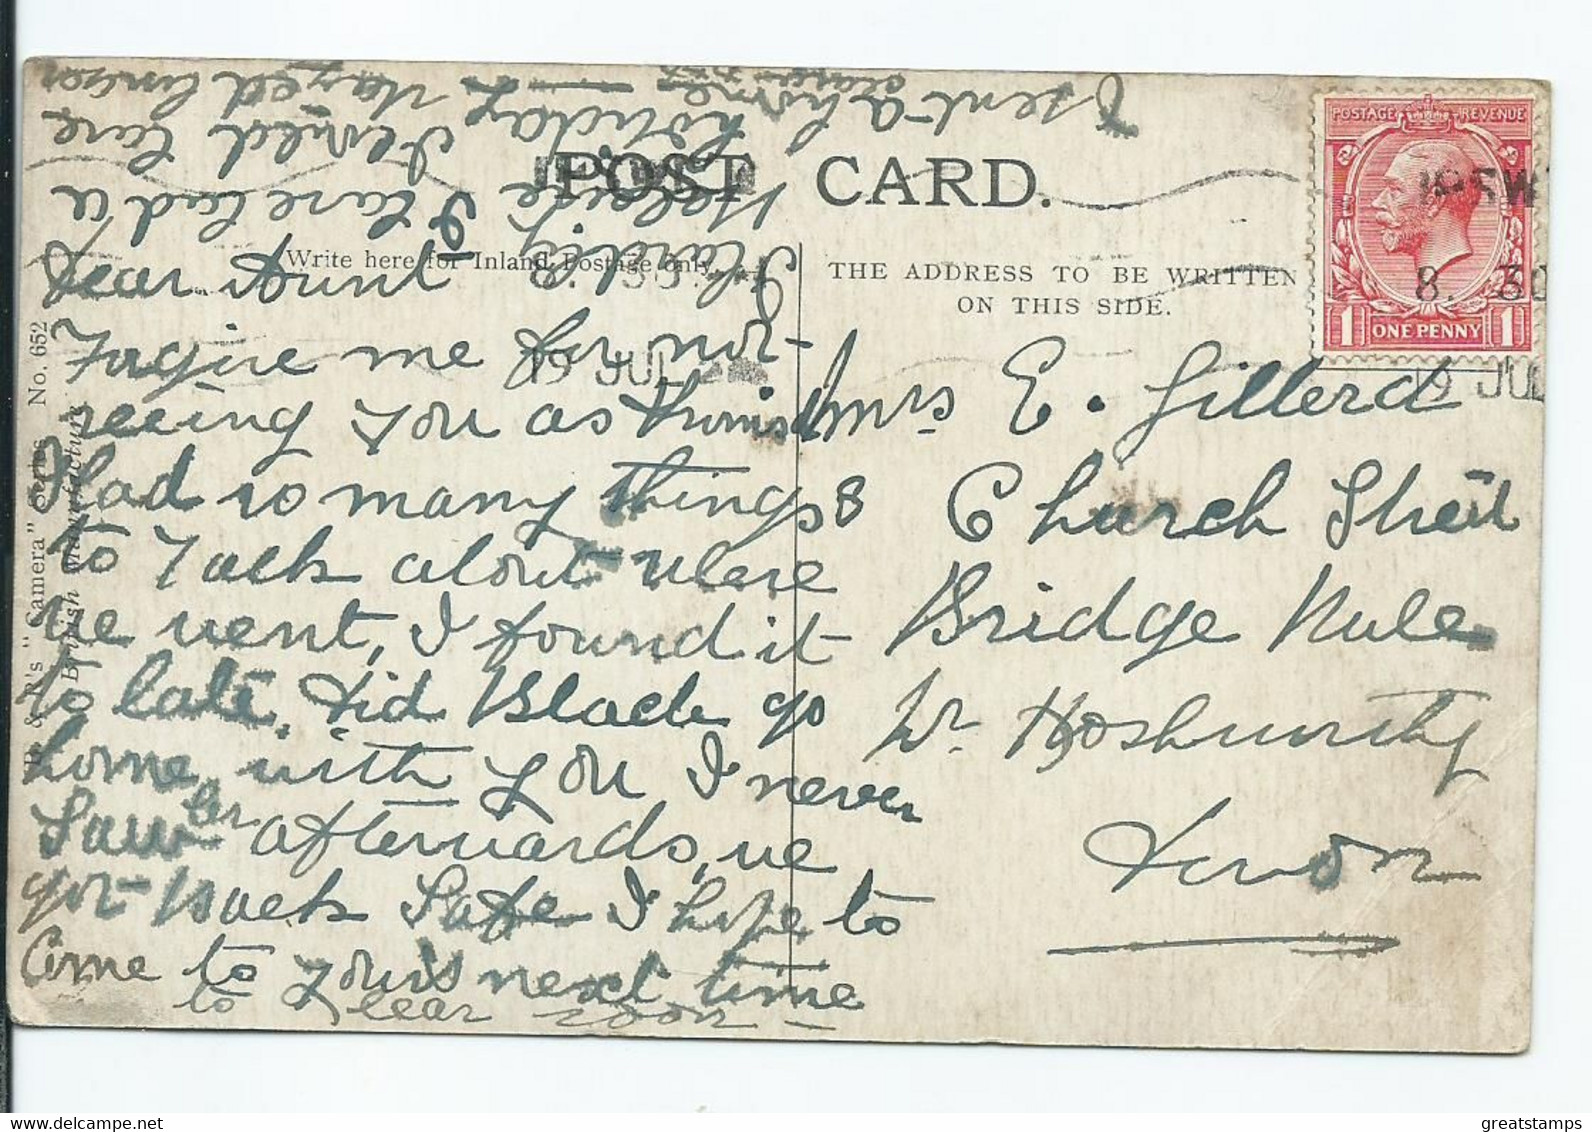 POST CARD.
Write here for Inland Postage only.
THE ADDRESS TO BE WRITTEN
ON THIS SIDE.
POSTAGE REVENUE
1 ONE PENNY 1
IPSW
8. 30
19 JUL
8. 30
19 JUL
R's "Camera" Series No. 652
British Manufacture
Dear Aunt
Forgive me for not
seeing you as promised
I had so many things
to talk about where
we went, I found it
to late, did Black go
home with you I never
Saw her afterwards, we
got back Safe I hope to
Come to yours next time
to hear soon
I sent a home
holiday
I have had a
Mrs E. Gillerd
8 Church Street
Bridge Rule
Nr Holsworthy
Devon
greatstamps